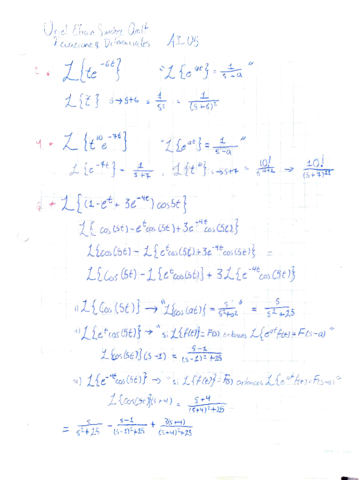 Ecuaciones Diferenciales A1.05
L{te^{-6t}} "L{e^{at}} = 1/(s-a)"
L{t} s→s+6 = 1/s² = 1/(s+6)²
4. L{t^{10} e^{-7t}} "L{e^{at}} = 1/(s-a)"
L{e^{-7t}} = 1/(s+7), L{t^{10}} s→s+7 = 10!/s^{10+1} → 10!/(s+7)^{11}
L{(1-e^t+3e^{-4t}) cos5t}
L{cos(5t) - e^t cos(5t) + 3e^{-4t} cos(5t)}
L{cos(5t) - L{e^t cos(5t) + 3e^{-4t} cos(5t)} =
L{cos(5t) - L{e^t cos(5t)] + 3L{e^{-4t} cos(5t)}
i) L{cos(5t)} → "L{cos(at)} = s/(s²+a²)" = s/(s²+25)
ii) L{e^t cos(5t)} → "si L{f(t)} = F(s) entonces L{e^{at} f(t)} = F(s-a)"
L{cos(5t)}(s-1) = (s-1)/((s-1)²+25)
L{e^{-4t} cos(5t)} → "si L{f(t)} = F(s) entonces L{e^{at} f(t)} = F(s-a)"
L{cos(5t)}(s+4) = (s+4)/((s+4)²+25)
= s/(s²+25) - (s-1)/((s-1)²+25) + 3(s+4)/((s+4)²+25)